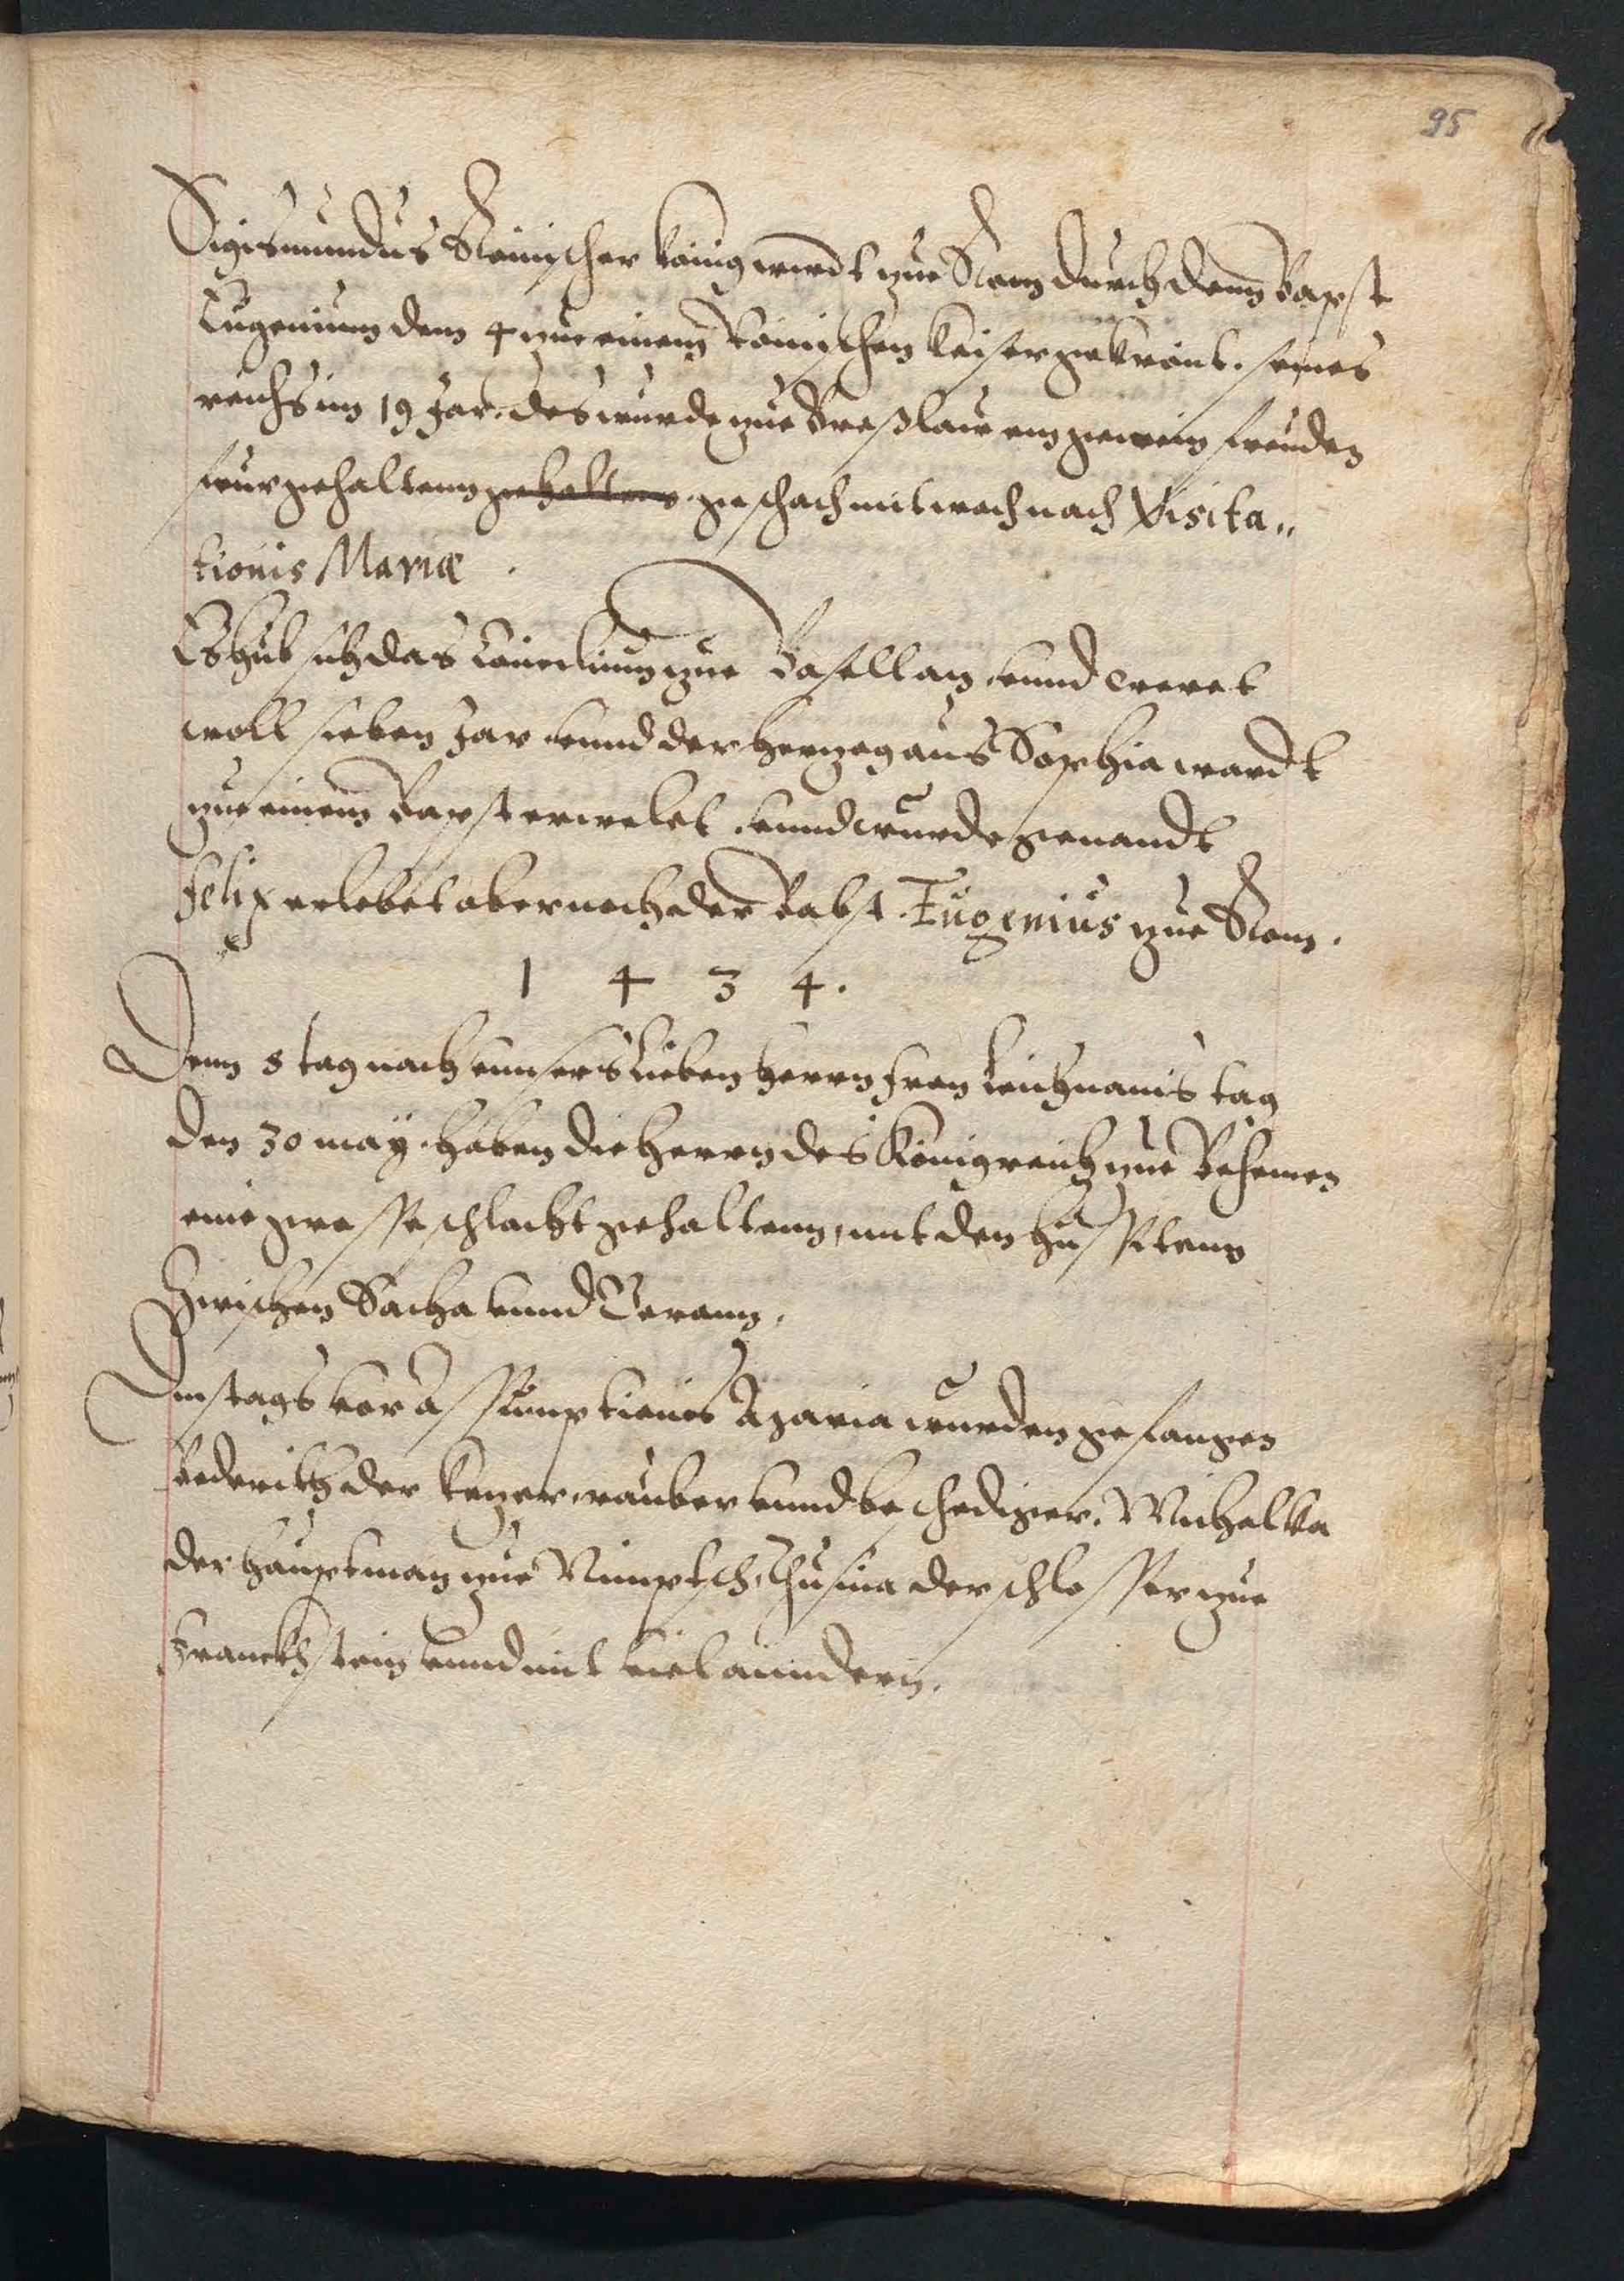 95
Sigismundus Römischer könig wirdt zue Rom durch denn Bapst
Eugenium dem 4 zue einem Römischen Keiser gekrönt. seines
reichs im 19 Jar. des wurde zue Breßlaw ein gemein freuden
feur gehaltenn gehalten. geschach mitwoch nach Visita„
tionis Mariæ.
Es hub sich das Concilium zue Basell an. vnnd weret
woll sieben Jar. vnnd der Herzog aus Sophia wardt
zue einem Bapst erwelet. vnnd wurde genandt
Felix erlebet aber noch der Babst Eugenius zue Rom.
1 4 3 4.
Denn 8 tag nach vnnsers lieben Herrn fron leichnams tag
den 30 may. haben die Herrn des Königreich zue Behemen
eine grosse schlacht gehaltenn, mit den Hussitenn
Zwischen Sacha vnnd Beraun.
Dinstags vor Assumptionis Maria wurden gefangen
Bederich der ketzer, rauber vnnd beschediger. Michalka
der hauptman zue Nimptsch, Husina der schlosser zue
Franckstein vnnd mit viel anndern.